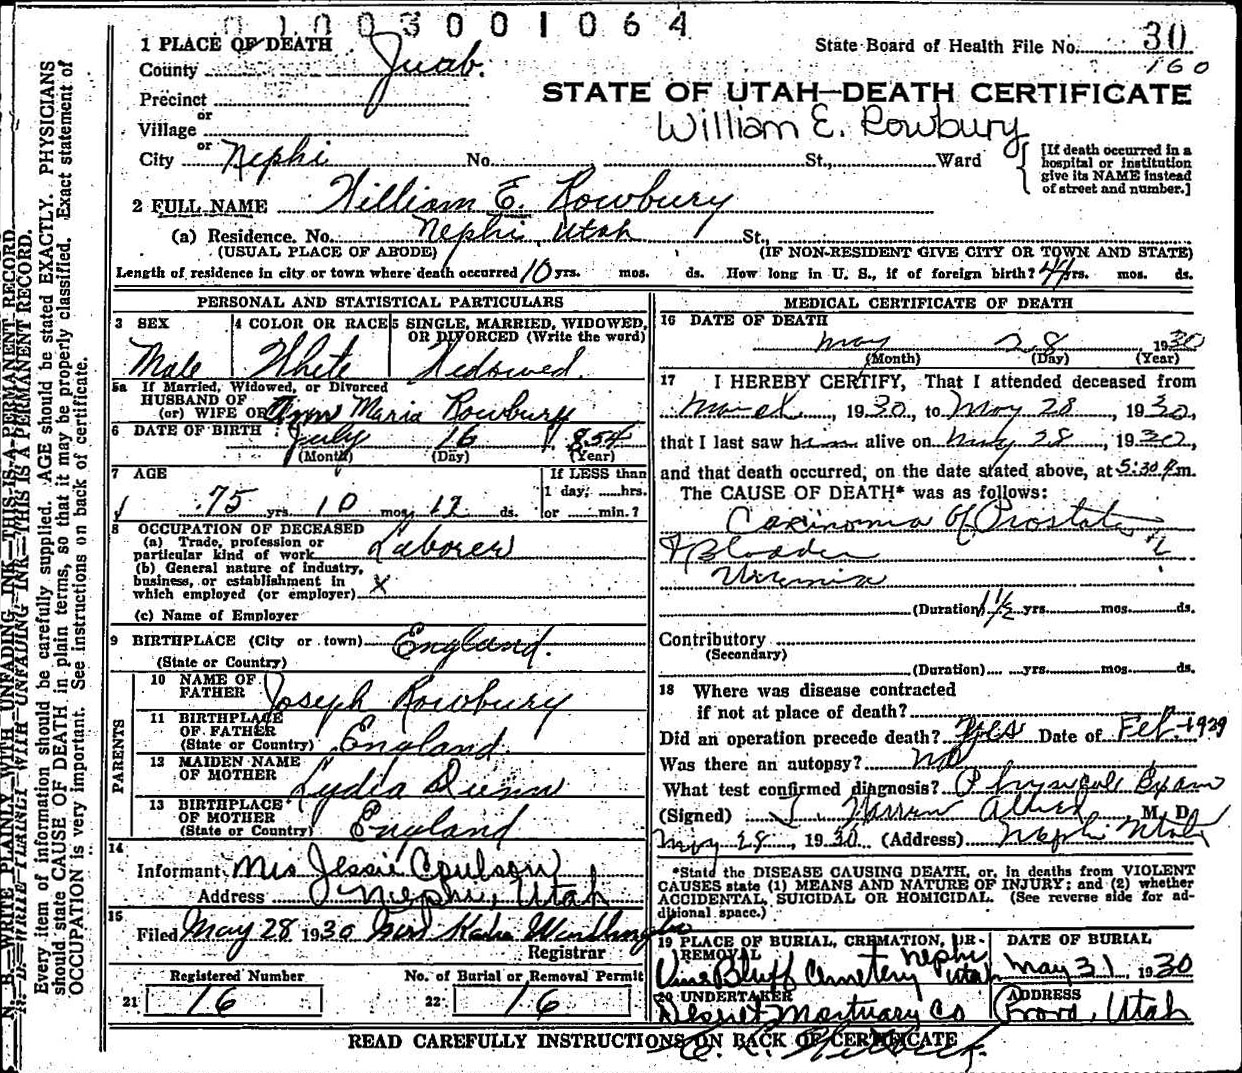 01003001064
1 PLACE OF DEATH
State Board of Health File No. 30
160
County Juab.
STATE OF UTAH—DEATH CERTIFICATE
Precinct
or
William E. Rowbury
Village
or
City Nephi No. St., Ward
[If death occurred in a
hospital or institution
give its NAME instead
of street and number.]
2 FULL NAME William E. Rowbury
(a) Residence. No. Nephi, Utah St.,
(USUAL PLACE OF ABODE) (IF NON-RESIDENT GIVE CITY OR TOWN AND STATE)
Length of residence in city or town where death occurred 10 yrs. mos. ds. How long in U. S., if of foreign birth? 44 yrs. mos. ds.
PERSONAL AND STATISTICAL PARTICULARS
3 SEX
Male
4 COLOR OR RACE
White
5 SINGLE, MARRIED, WIDOWED,
OR DIVORCED (Write the word)
Widowed.
5a If Married, Widowed, or Divorced
HUSBAND OF
(or) WIFE OF Ann Maria Rowbury
6 DATE OF BIRTH July 16 1854
(Month) (Day) (Year)
7 AGE
75 yrs. 10 mos. 12 ds.
If LESS than
1 day, hrs.
or min.?
8 OCCUPATION OF DECEASED
(a) Trade, profession or
particular kind of work Laborer
(b) General nature of industry,
business, or establishment in
which employed (or employer) X
(c) Name of Employer
9 BIRTHPLACE (City or town) England.
(State or Country)
PARENTS
10 NAME OF
FATHER Joseph Rowbury
11 BIRTHPLACE
OF FATHER
(State or Country) England.
12 MAIDEN NAME
OF MOTHER Lydia Dunn
13 BIRTHPLACE
OF MOTHER
(State or Country) England
14
Informant Mrs Jessie Coulson
Address Nephi, Utah
15
Filed May 28 1930
Registrar
Registered Number
21 16
No. of Burial or Removal Permit
22 16
MEDICAL CERTIFICATE OF DEATH
16 DATE OF DEATH
May 28 1930
(Month) (Day) (Year)
17 I HEREBY CERTIFY, That I attended deceased from
March, 1930, to May 28, 1930,
that I last saw him alive on May 28, 1930,
and that death occurred, on the date stated above, at 5:30 P.m.
The CAUSE OF DEATH* was as follows:
Carinoma of Prostate
& Bladder
Uremia
(Duration) 1 1/2 yrs. mos. ds.
Contributory
(Secondary)
(Duration) yrs. mos. ds.
18 Where was disease contracted
if not at place of death?
Did an operation precede death? Yes Date of Feb - 1929
Was there an autopsy? no
What test confirmed diagnosis? Physical Exam
(Signed) Warren Allred M. D.
May 28, 1930 (Address) Nephi Utah
*State the DISEASE CAUSING DEATH, or, in deaths from VIOLENT
CAUSES state (1) MEANS AND NATURE OF INJURY; and (2) whether
ACCIDENTAL, SUICIDAL OR HOMICIDAL. (See reverse side for ad-
ditional space.)
19 PLACE OF BURIAL, CREMATION, OR
REMOVAL
Vine Bluff Cemetery Nephi Utah
DATE OF BURIAL
May 31, 1930
20 UNDERTAKER
Deseret Mortuary Co
ADDRESS
Provo, Utah
READ CAREFULLY INSTRUCTIONS ON BACK OF CERTIFICATE
N. B.—WRITE PLAINLY—WITH UNFADING INK—THIS IS A PERMANENT RECORD.
Every item of information should be carefully supplied. AGE should be stated EXACTLY. PHYSICIANS
should state CAUSE OF DEATH in plain terms, so that it may be properly classified. Exact statement of
OCCUPATION is very important. See instructions on back of certificate.